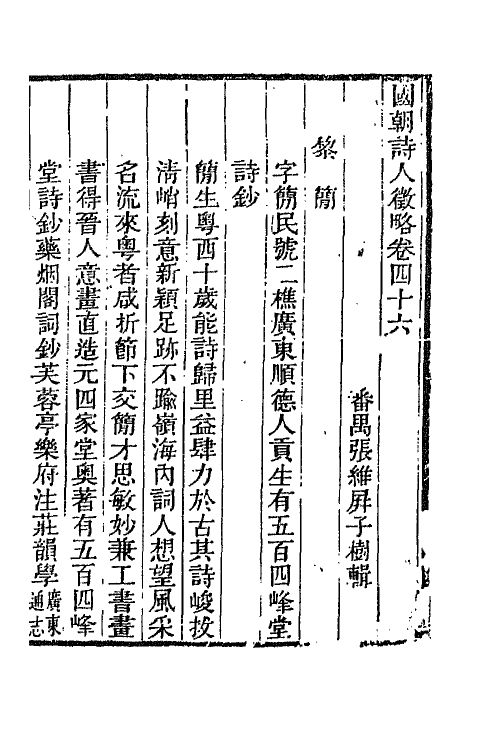 國朝詩人徵略卷四十六
番禺張維屛子樹輯
黎簡
字簡民號二樵廣東順德人貢生有五百四峰堂
詩鈔
簡生粵西十歲能詩歸里益肆力於古其詩峻拔
淸峭刻意新穎足跡不踰嶺海內詞人想望風采
名流來粵者咸折節下交簡才思敏妙兼工書畫
書得晉人意畫直造元四家堂奧著有五百四峰
堂詩鈔藥烟閣詞鈔芙蓉亭樂府注莊韻學廣東通志